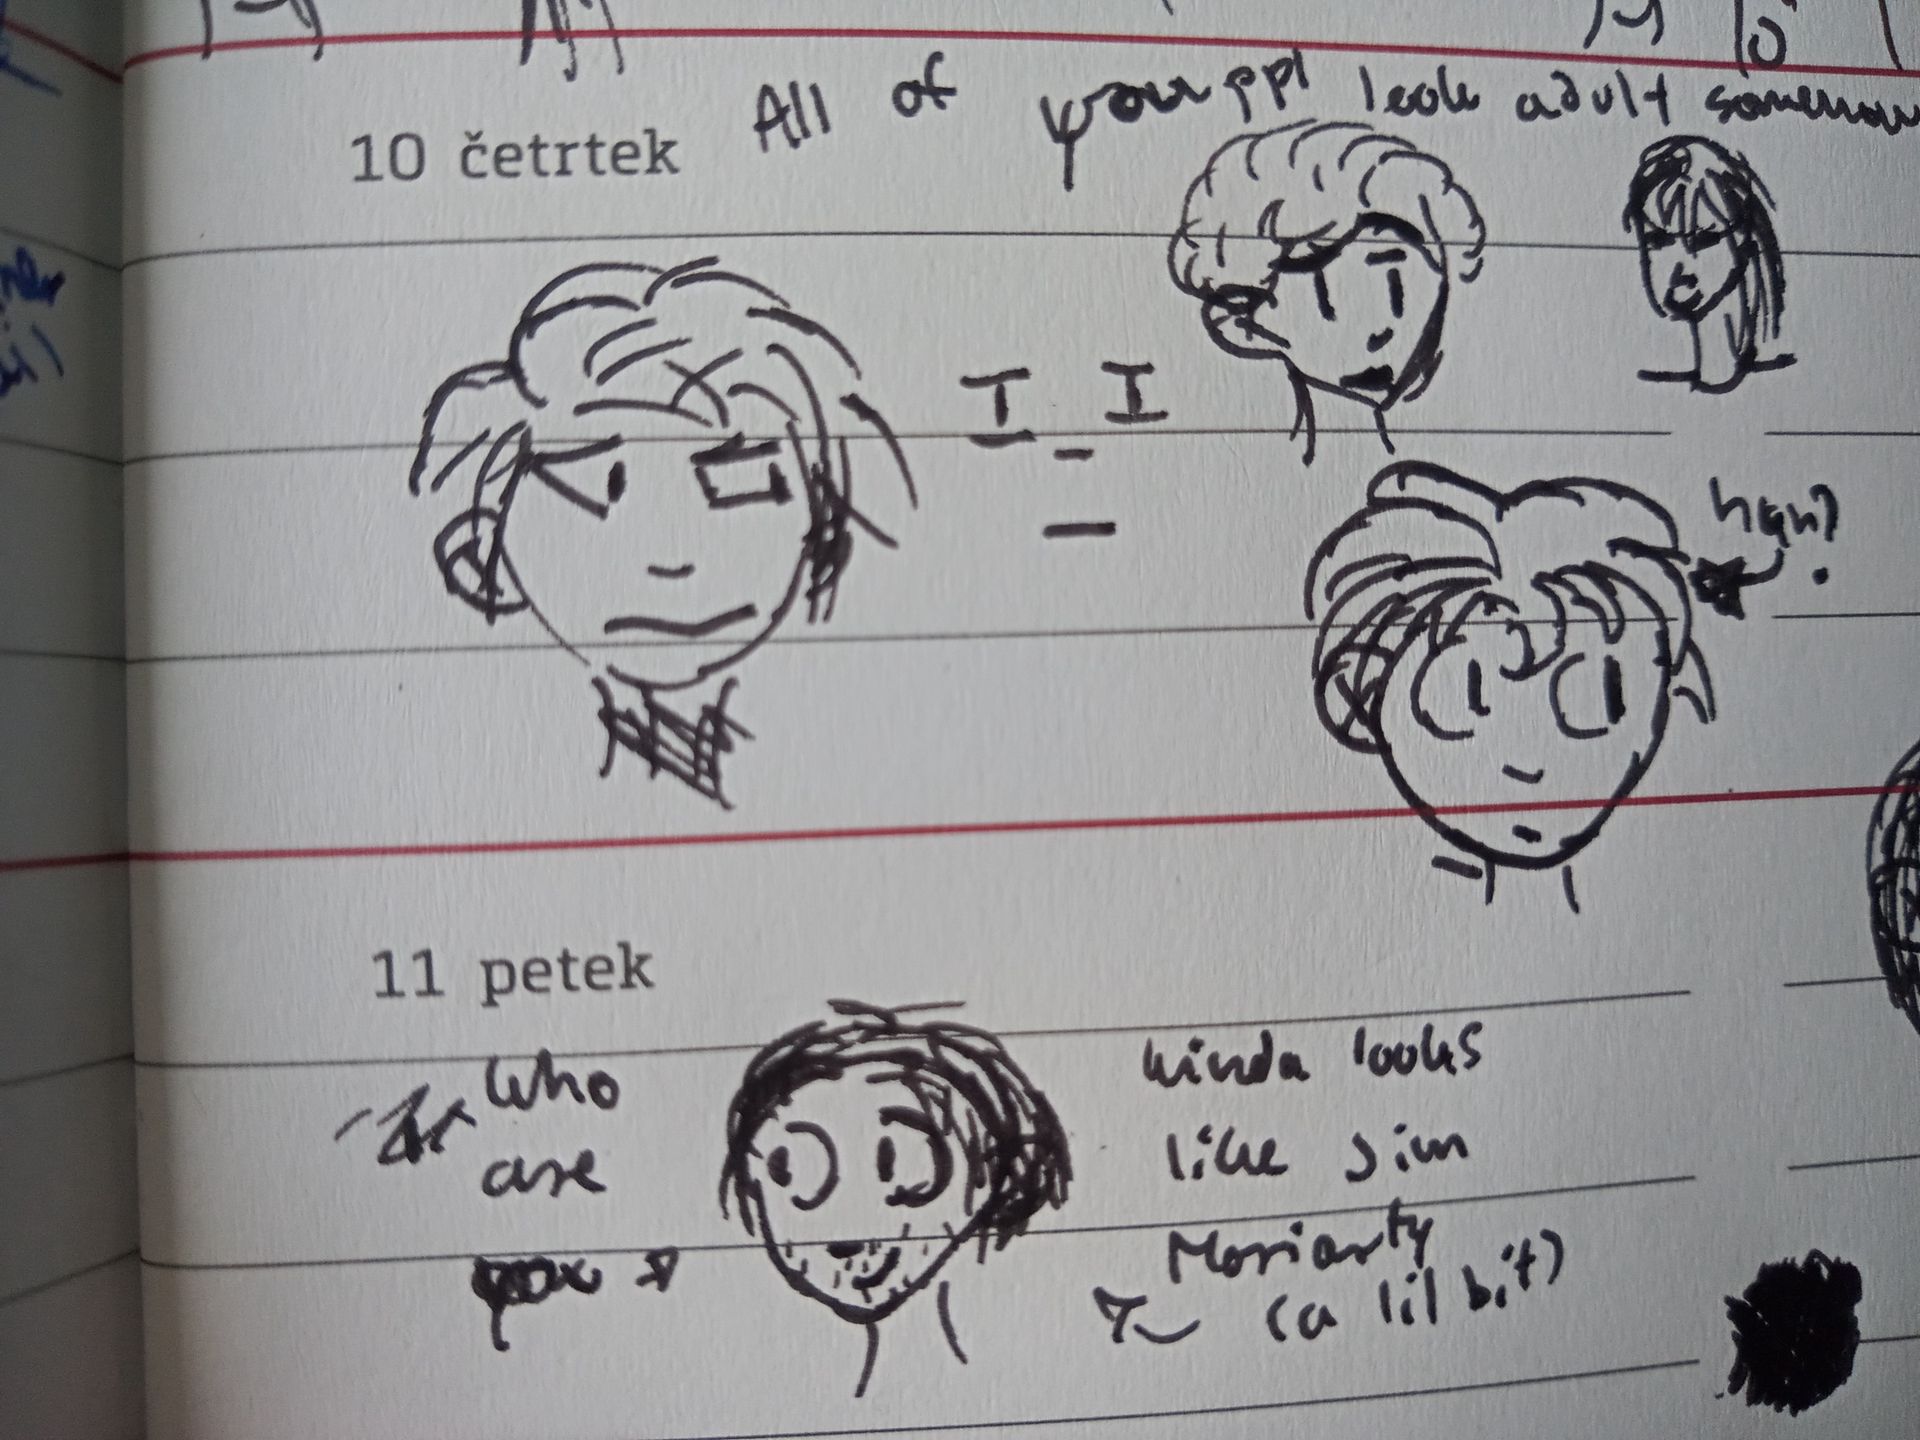 All of your ppl look adult somehow
10 četrtek
11 petek
who
are
you
kinda looks
like Jim
Moriarty
(a lil bit)